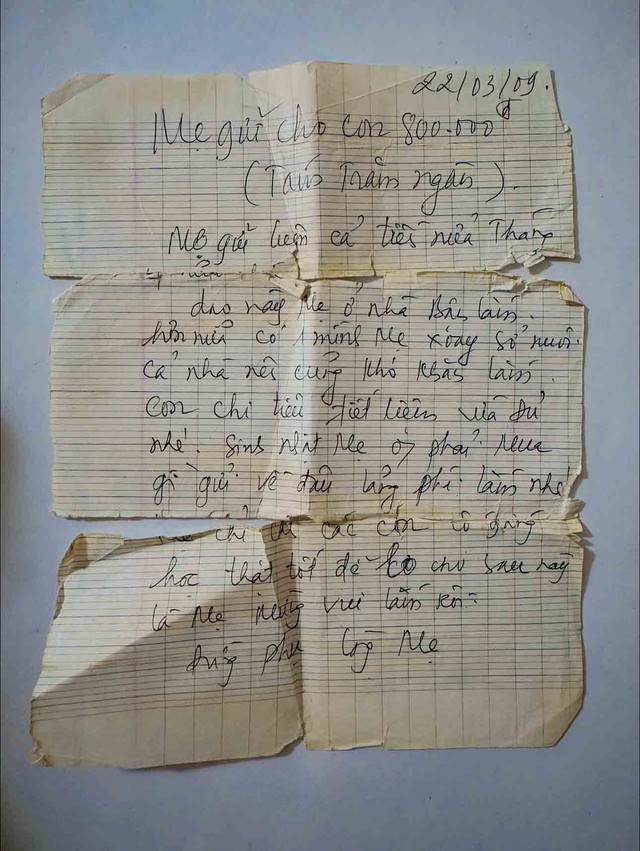 22/03/09.
Mẹ gửi cho con 800.000đ
(Tám Trăm ngàn).
Mẹ gửi luôn cả tiền nửa Tháng
dạo này Mẹ ở nhà Bận lắm.
hơn nữa có 1 mình Mẹ xoay sở nuôi
cả nhà nên cũng khó khăn lắm.
Con chi tiêu tiết kiệm vừa đủ
nhé. Sinh nhật Mẹ o phải Mua
gì gửi về đâu lãng phí lắm nhé
chỉ các con cố gắng
học thật tốt để lo cho sau này
là Mẹ Mừng vui lắm rồi.
Đừng phụ lòng Mẹ